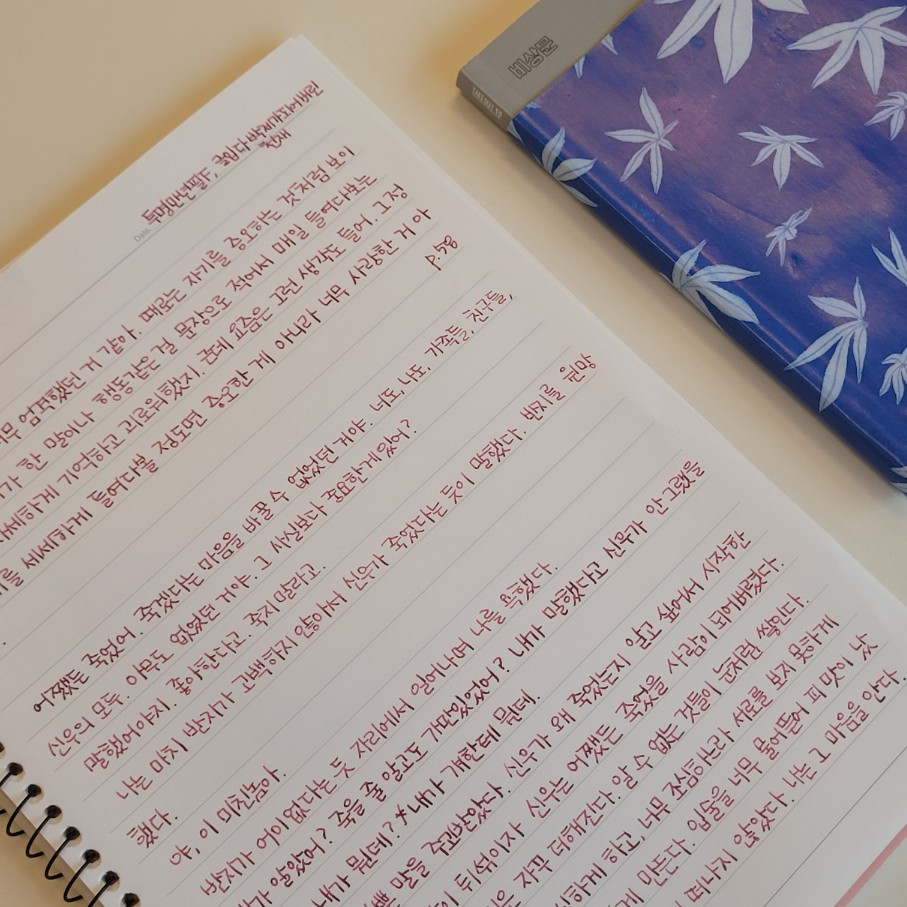 비상문
Date
너무 엄격했던 거 같아. 때로는 자기를 증오하는 것처럼 보이
가 한 말이나 행동 같은 걸 문장으로 적어서 매일 들여다보는
세세하게 기억하고 괴로워했지. 근데 요즘은 그런 생각도 들어. 그 정
를 세세하게 들여다볼 정도면 증오한 게 아니라 너무 사랑한 거 아
p.58
어쨌든 죽었어. 죽겠다는 마음을 바꿀 수 없었던 거야. 너도, 나도, 가족들, 친구들,
신우의 모두. 아무도 없었던 거야. 그 사실보다 중요한 게 있어?
말했어야지. 좋아한다고. 죽지 말라고.
나는 마치 반지가 고백하지 않아서 신우가 죽었다는 듯이 말했다. 반지를 원망
했다.
야, 이 미친놈아.
반지가 어이없다는 듯 자리에서 일어나며 나를 욕했다.
가 알았어? 죽을 줄 알고도 가만있었어? 내가 말했다고 신우가 안 그랬을
내가 뭔데? 내가 걔한테 뭔데.
말을 반았다. 신우가 왜 죽었는지 알고 싶어서 시작한
이 뒤섞이자 신우는 어쨌든 죽었을 사람이 되어버렸다.
은 자꾸 더해진다. 알 수 없는 것들이 눈처럼 쌓인다.
하게 하고, 너무 조심하느라 서로를 보지 못하게
게 만든다. 입술을 너무 물어뜯어 피 맛이 났
떠나지 않았다. 나는 그 마음을 안다.